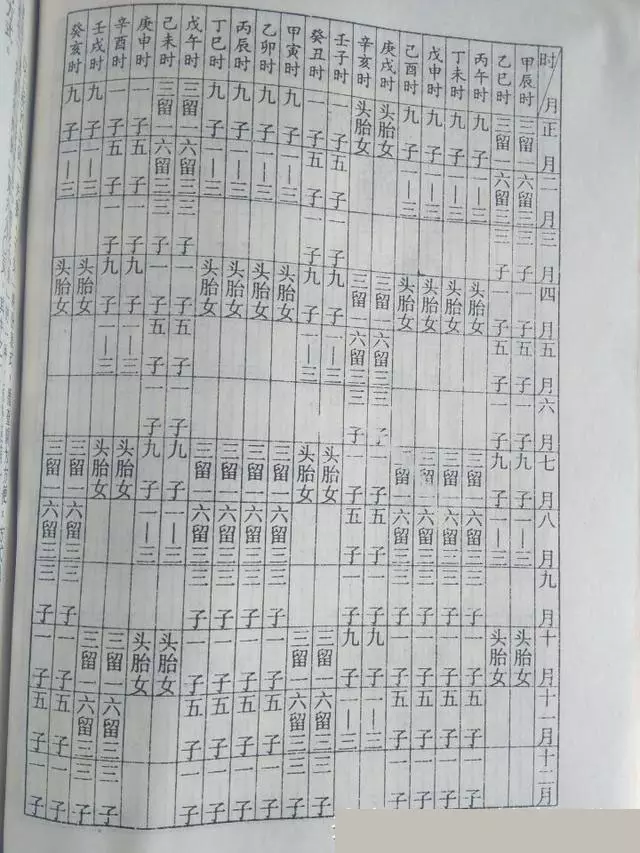 时/月 正月 二月 三月 四月 五月 六月 七月 八月 九月 十月 十一月 十二月
甲辰时 三留一 六留三 三子 一子 五子 一子 九子 一—三 头胎女
乙巳时 三留一 六留三 三子 一子 五子 一子 九子 一—三 头胎女
丙午时 九子 一—三 头胎女 三留一 六留三 三子 一子 五子 一子
丁未时 九子 一—三 头胎女 三留一 六留三 三子 一子 五子 一子
戊申时 九子 一—三 头胎女 三留一 六留三 三子 一子 五子 一子
己酉时 九子 一—三 头胎女 三留一 六留三 三子 一子 五子 一子
庚戌时 头胎女 三留一 六留三 三子 一子 五子 一子 九子 一—三
辛亥时 头胎女 三留一 六留三 三子 一子 五子 一子 九子 一—三
壬子时 一子 五子 一子 九子 一—三 头胎女 三留一 六留三 三子
癸丑时 一子 五子 一子 九子 一—三 头胎女 三留一 六留三 三子
甲寅时 九子 一—三 头胎女 三留一 六留三 三子 一子 五子 一子
乙卯时 九子 一—三 头胎女 三留一 六留三 三子 一子 五子 一子
丙辰时 九子 一—三 头胎女 三留一 六留三 三子 一子 五子 一子
丁巳时 九子 一—三 头胎女 三留一 六留三 三子 一子 五子 一子
戊午时 三留一 六留三 三子 一子 五子 一子 九子 一—三 头胎女
己未时 三留一 六留三 三子 一子 五子 一子 九子 一—三 头胎女
庚申时 一子 五子 一子 九子 一—三 头胎女 三留一 六留三 三子
辛酉时 一子 五子 一子 九子 一—三 头胎女 三留一 六留三 三子
壬戌时 九子 一—三 头胎女 三留一 六留三 三子 一子 五子 一子
癸亥时 九子 一—三 头胎女 三留一 六留三 三子 一子 五子 一子